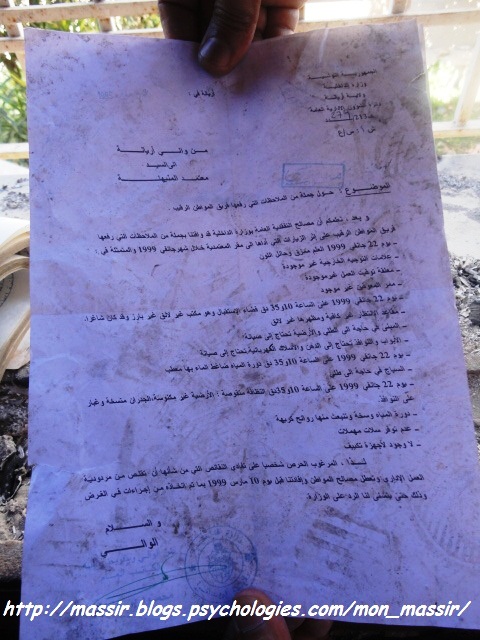 الجمهورية التونسية
وزارة الداخلية
ولاية أريانة
دائرة الشؤون الإدارية العامة
أريانة في :
من والي أريانة
الى السيد
معتمد المنيهلة
الموضوع : حول جملة من الملاحظات التي رفعها فريق المواطن الرقيب.
و بعد ، نحلمكم أن مصالح التفقدية العامة بوزارة الداخلية قد وافتنا بجملة من الملاحظات التي رفعها
فريق المواطن الرقيب على إثر الزيارات التي أداها الى مقر المعتمدية خلال شهر جانفي 1999 والمتمثلة في :
– يوم 22 جانفي 1999 العلم ممزق وحائل اللون
– علامات التوجيه الخارجية غير موجودة
– معلقة توقيت العمل غير موجودة
– ممر المعوقين غير موجود
– يوم 22 جانفي 1999 على الساعة 10و35 دق فضاء الاستقبال وهو مكتب غير لائق غير بارز وقد كان شاغرا.
– مقاعد الانتظار غير كافية ومظهرها غير لائق
– المبنى في حاجة الى الطلي والأرضية تحتاج إلى صيانة
– الأبواب والنوافذ تحتاج إلى الدهن والأسلاك الكهربائية تحتاج إلى صيانة
– يوم 22 جانفي 1999 على الساعة 10و35 دق دورة المياه ضاغط الماء بها معطب
– السياج في حاجة الى طلي
– يوم 22 جانفي 1999 على الساعة 10و35دق النظافة منقوصة : الأرضية غير مكنوسة،الجدران متسخة وغبار
على النوافذ.
– دورة المياه وسخة وتنبعث منها روائح كريهة
– عدم توفر سلات مهملات
– لا وجود لأجهزة تكييف
لـذا ، المرغوب الحرص شخصيا على تفادي النقائص التي من شأنها أن تقلص من مردودية
العمل الإداري وتعطل مصالح المواطن وإفادتنا قبل يوم 10 مارس 1999 بما تم اتخاذه من إجراءات في الغرض
وذلك حتى يتسنى لنا الرد على الوزارة.
و السـلام
الوالي
http://massir.blogs.psychologies.com/mon_massir/